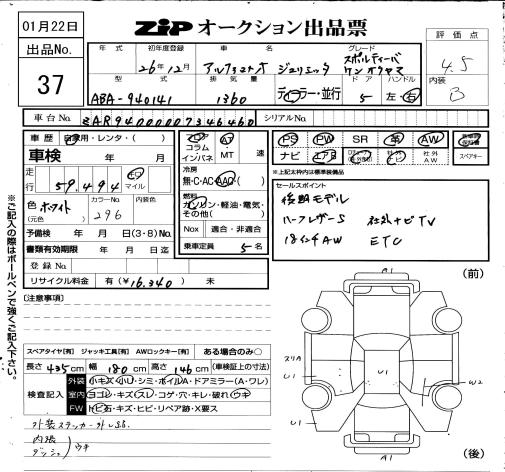 01月22日
ZIP オークション出品票
出品No.
37
年式
初年度登録
車名
グレード
評価点
26年12月
アルファロメオ
ジュリエッタ
スポルティーバ
4.5
型式
排気量
ドア
ハンドル
内装
ABA-940141
1360
ディーラー・並行
5
左・右
B
車台No.
ZAR94000007346460
シリアルNo.
車歴
自家用・レンタ・( )
コラム
インパネ
AT
MT
速
PS
PW
SR
革
AW
ナビ
エアB
社外
AW
スペアキー
車検
年
月
走行
59,494
マイル
冷房
無・C・AC・AAC・( )
※上記太枠内は標準装備品
色
ホワイト
(元色)
カラーNo.
296
内装色
燃料
ガソリン・軽油・電気・
その他( )
セールスポイント
後期モデル
ハーフレザーS
社外ナビTV
18インチAW
ETC
予備検
年
月
日(3・8)No.
Nox
適合・非適合
書類有効期限
年
月
日迄
乗車定員
5名
登録No.
リサイクル料金
有(￥16,340)
未
[注意事項]
(前)
スペアタイヤ[有]
ジャッキ工具[有]
AWロックキー[有]
ある場合のみ○
長さ 435cm
幅 180cm
高さ 146cm
(車検証上の寸法)
検査記入
外装
小キズ・小U・シミ・ボイルA・ドアミラー(A・ワレ)
室内
ヨゴレ・キズ・スレ・コゲ・穴・キレ・破れ・ウキ
FW
トビ石・キズ・ヒビ・リペア跡・X要ス
外装ステッカー
内張
ダッシュ
ウキ
※ご記入の際はボールペンで強くご記入下さい。
A1
スリA
U1
U1
W2
U1
U1
A1
(後)